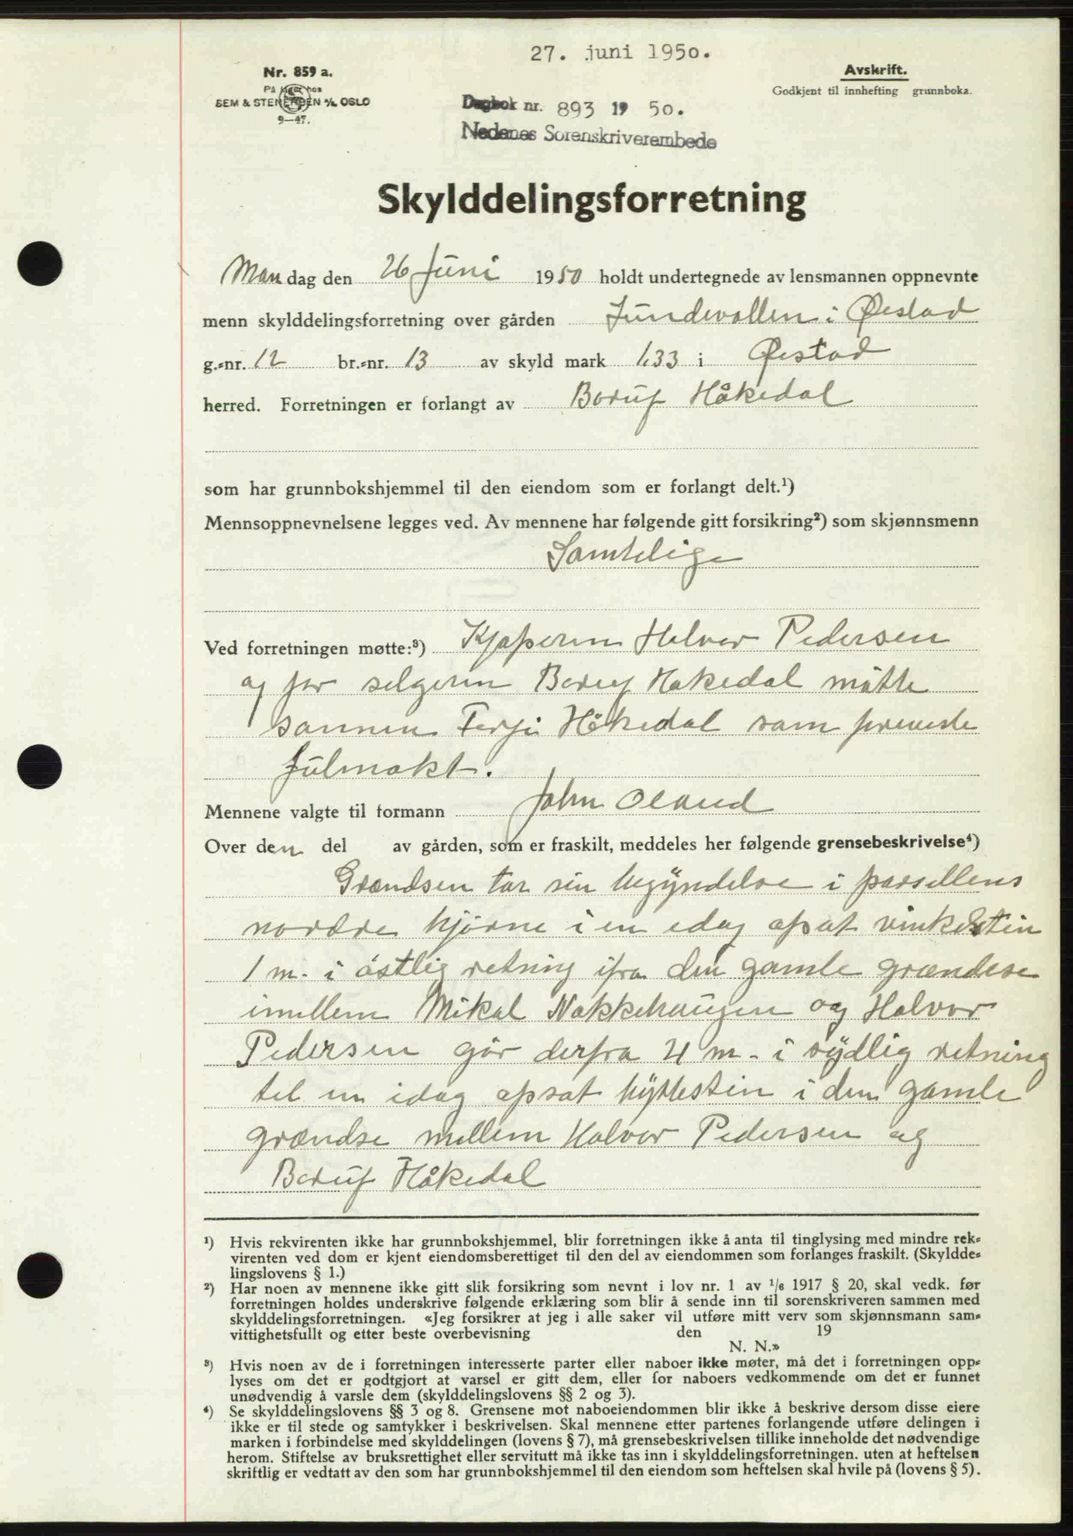 27. juni 1950.
Nr. 859 a.
På lager hos
SEM & STENERSEN A/S OSLO
9—47.
Avskrift.
Godkjent til innhefting grunnboka.
Dagbok nr. 893 19 50.
Nedenes Sorenskriverembede
Skylddelingsforretning
Mandag den 26 Juni 1950 holdt undertegnede av lensmannen oppnevnte
menn skylddelingsforretning over gården Jundevollen i Øiestad
g.-nr. 12 br.-nr. 13 av skyld mark 1.33 i Øiestad
herred. Forretningen er forlangt av Borup Håkedal
som har grunnbokshjemmel til den eiendom som er forlangt delt.¹)
Mennsoppnevnelsene legges ved. Av mennene har følgende gitt forsikring²) som skjønnsmenn
Samtelige
Ved forretningen møtte:³) Kjøperen Halvor Pedersen
og for selgeren Håkedal møtte
sønnen Terje Håkedal som
fulmakt.
Mennene valgte til formann John Oland
Over den del av gården, som er fraskilt, meddeles her følgende grensebeskrivelse⁴)
Grændsen tar sin begyndelse i parsellens
nordre hjørne i en idag apsat vinkelstein
1 m. i østlig retning ifra den gamle grændse
imellem Mikal Nakkehaugen og Halvor
Pedersen går derfra 21 m. i sydlig retning
til en idag apsat hyttestein i den gamle
grændse mellem Halvor Pedersen og
Borup Håkedal
¹) Hvis rekvirenten ikke har grunnbokshjemmel, blir forretningen ikke å anta til tinglysing med mindre rek-
virenten ved dom er kjent eiendomsberettiget til den del av eiendommen som forlanges fraskilt. (Skyldde-
lingslovens § 1.)
²) Har noen av mennene ikke gitt slik forsikring som nevnt i lov nr. 1 av 1/6 1917 § 20, skal vedk. før
forretningen holdes underskrive følgende erklæring som blir å sende inn til sorenskriveren sammen med
skylddelingsforretningen. «Jeg forsikrer at jeg i alle saker vil utføre mitt verv som skjønnsmann sam-
vittighetsfullt og etter beste overbevisning den 19
N. N.»
³) Hvis noen av de i forretningen interesserte parter eller naboer ikke møter, må det i forretningen opp-
lyses om det er godtgjort at varsel er gitt dem, eller for naboers vedkommende om det er funnet
unødvendig å varsle dem (skylddelingslovens §§ 2 og 3).
⁴) Se skylddelingslovens §§ 3 og 8. Grensene mot naboeiendommen blir ikke å beskrive dersom disse eiere
ikke er til stede og samtykker i beskrivelsen. Skal mennene etter partenes forlangende utføre delingen i
marken i forbindelse med skylddelingen (lovens § 7), må grensebeskrivelsen tillike inneholde det nødvendige
herom. Stiftelse av bruksrettighet eller servitutt må ikke tas inn i skylddelingsforretningen. uten at heftelsen
skriftlig er vedtatt av den som har grunnbokshjemmel til den eiendom som heftelsen skal hvile på (lovens § 5).